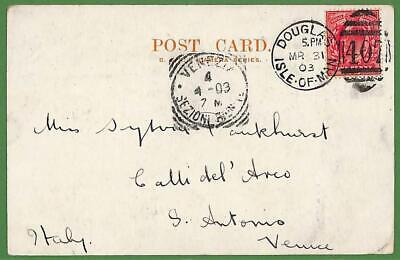 POST CARD.
SERIES.
DOUGLAS
5.PM
MR 31
03
ISLE-OF-MAN
407
VENEZIA
4
4-03
7 M
SEZIONE
Miss Sylvia Pankhurst
Calli del' Arco
S. Antonio
Venice
Italy.